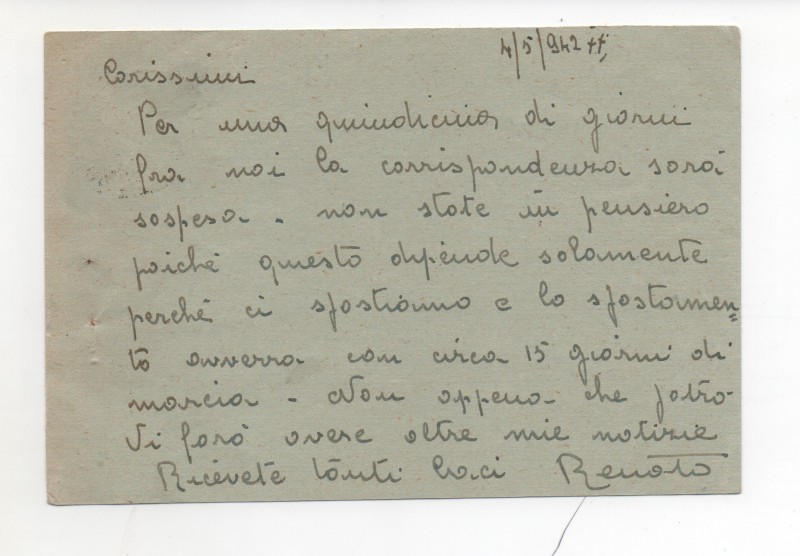 4/5/942
Carissimi
Per una quindicina di giorni
fra noi la corrispondenza sarà
sospesa - non state in pensiero
poiché questo dipende solamente
perché ci spostiamo e lo spostamen=
to avverra con circa 15 giorni di
marcia - Non appena che potrò
Vi farò avere altre mie notizie
Ricevete tanti baci Renato